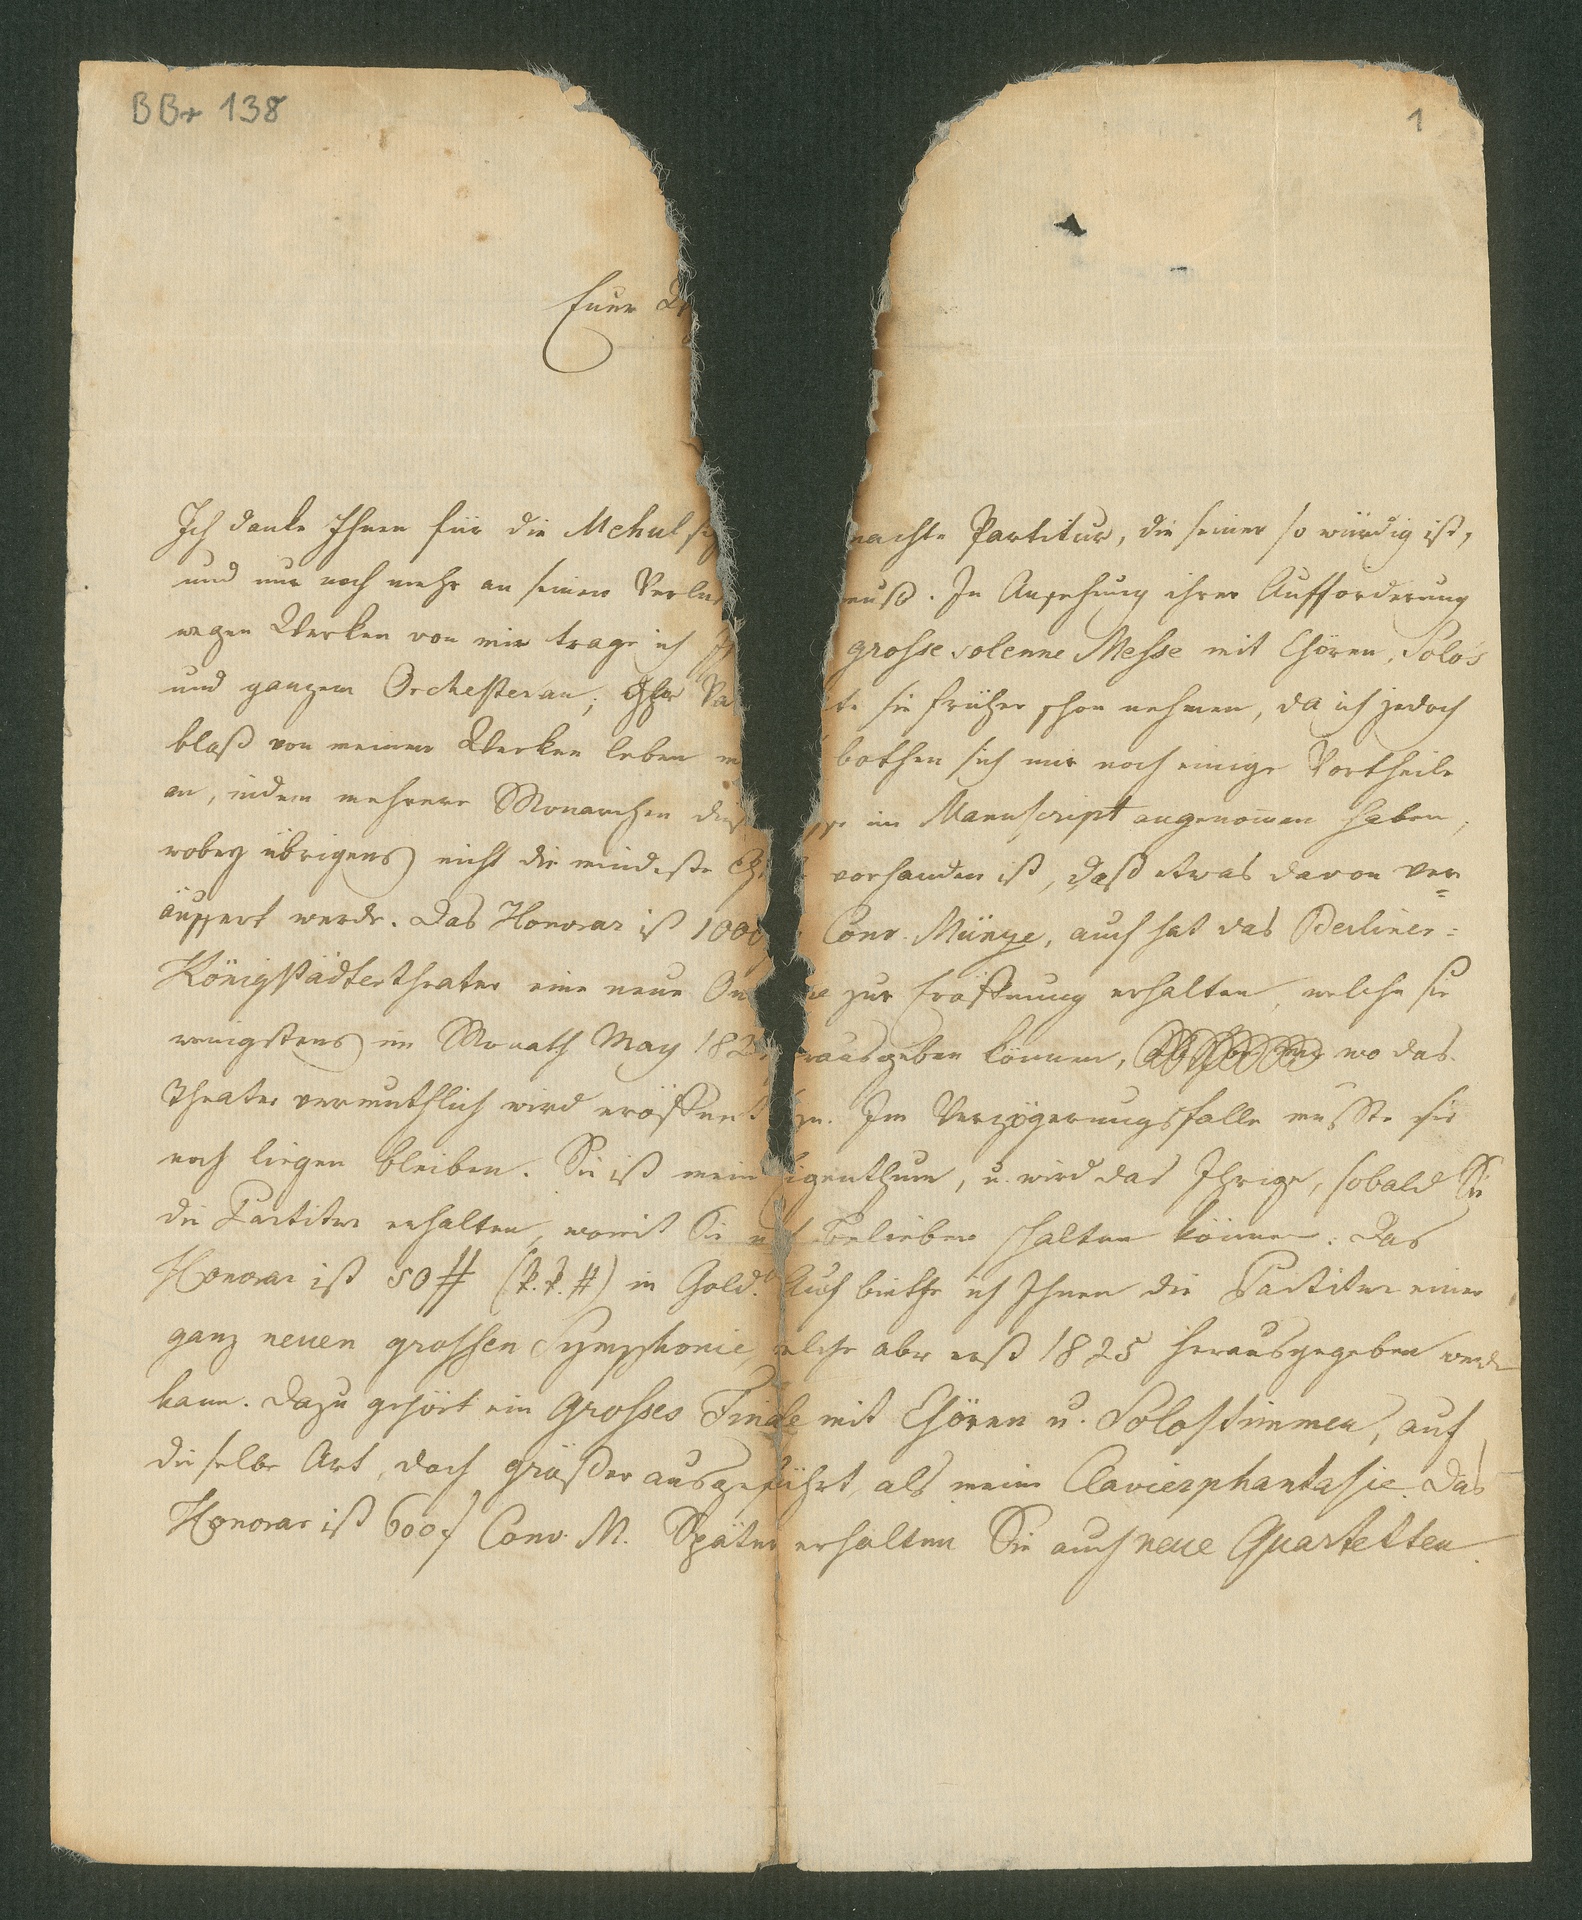 BBr 138
1
Euer
Ich danke Ihnen für die Mehul machte Partitur, die seiner so würdig ist,
und nur noch mehr an seinen Verlus muß. In Ansehung ihrer Aufforderung
wegen Werken von mir trage ich grosse solenne Messe mit Chören, Solo's
und ganzem Orchester an; Ihr Va te sie früher schon nehmen, da ich jedoch
bloß von meinen Werken leben m bothen sich mir noch einige Vortheile
an, indem mehrere Monarchen dies sse im Manuscript angenommen haben,
wobey übrigens nicht die mindeste vorhanden ist, daß etwas davon ver=
äussert werde. Das Honorar ist 1000 Conv. Münze, auch hat das Berliner=
Königstädtertheater eine neue Ou re zur Eröffnung erhalten, welche sie
wenigstens im Monath May 182 rausgeben können, wo das
Theater vermuthlich wird eröffnet en. Im Verzögerungsfalle müsste sie
noch liegen bleiben. Sie ist mein Eigenthum, u. wird das Ihrige, sobald Sie
die Partitur erhalten, womit Sie n Belieben schalten können. Das
Honorar ist 50# (k.k.#) in Gold. Auch biethe ich Ihnen die Partitur einer
ganz neuen grossen Symphonie, welche aber erst 1825 herausgegeben werden
kann. Dazu gehört ein grosses Finale mit Chören u. Solostimmen, auf
dieselbe Art, doch größer ausgeführt, als meine Clavierphantasie. Das
Honorar ist 600f Conv. M. Später erhalten Sie auch neue Quartetten.